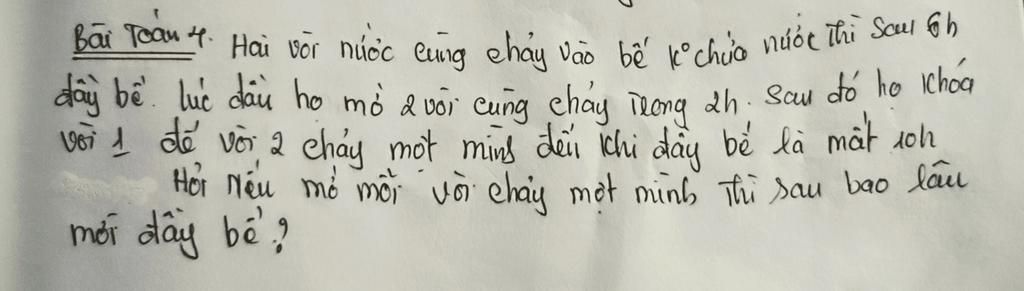 Bài Toán 4. Hai vòi nước cùng chảy vào bể k° chứa nước thì sau 6h
đầy bể. lúc đầu họ mở 2 vòi cùng chảy trong 2h. Sau đó họ khóa
vòi 1 để vòi 2 chảy một mình đến khi đầy bể là mất 10h
Hỏi nếu mở mỗi vòi chảy một mình thì sau bao lâu
mới đầy bể?